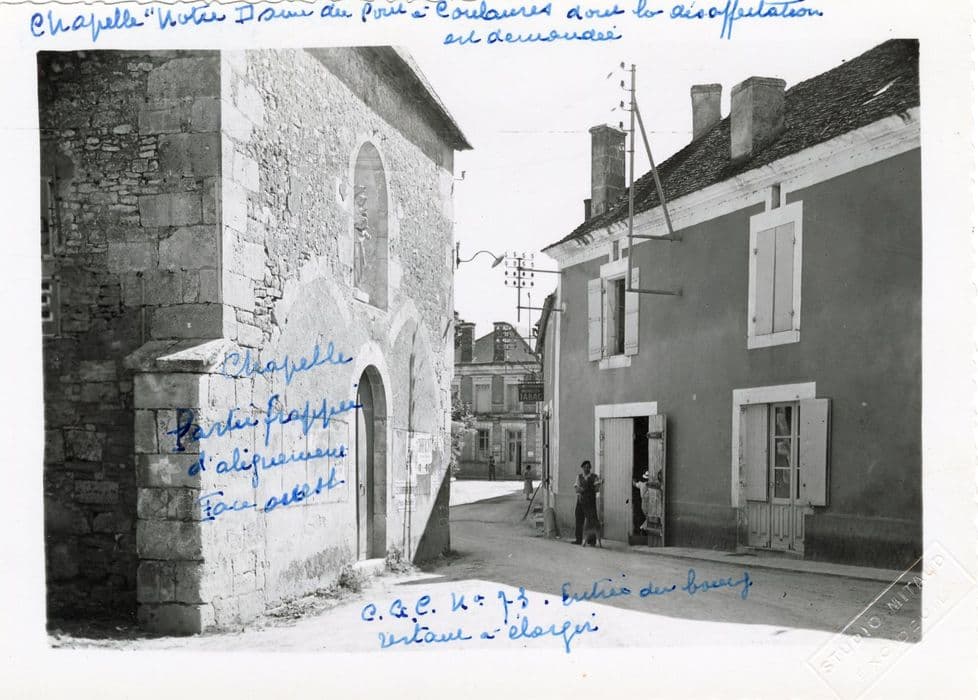 Chapelle "Notre Dame du Pont à Coulaures dont la désaffectation
est demandée
TABAC
Chapelle
Partie frappée
d'alignement
Face ouest
C.G.C. No 73. Entrée du bourg
restant à élargir
STUDIO MITALD
EXCIDEUIL